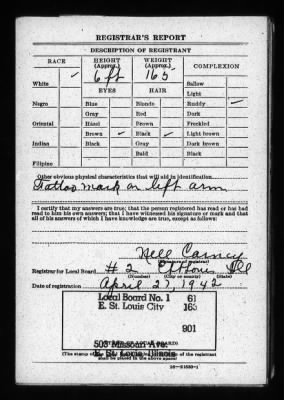 REGISTRAR'S REPORT
DESCRIPTION OF REGISTRANT
RACE
HEIGHT (Approx.)
WEIGHT (Approx.)
COMPLEXION
6 ft
165
White ✓
Sallow
EYES
HAIR
Light
Negro
Blue
Blonde
Ruddy ✓
Gray
Red
Dark
Oriental
Hazel
Brown
Freckled
Brown ✓
Black ✓
Light brown
Indian
Black
Gray
Dark brown
Bald
Black
Filipino
Other obvious physical characteristics that will aid in identification
Tattoo mark on left arm
I certify that my answers are true; that the person registered has read or has had
read to him his own answers; that I have witnessed his signature or mark and that
all of his answers of which I have knowledge are true, except as follows:
Nell Carney
(Signature of registrar)
Registrar for Local Board # 2 Ill
(Number) (City or county) (State)
Date of registration April 27, 1942
Local Board No. 1 61
E. St. Louis City 163
901
503 Missouri Ave.
E. St. Louis, Illinois
(The stamp of the of the registrant
shall be placed in the above space)